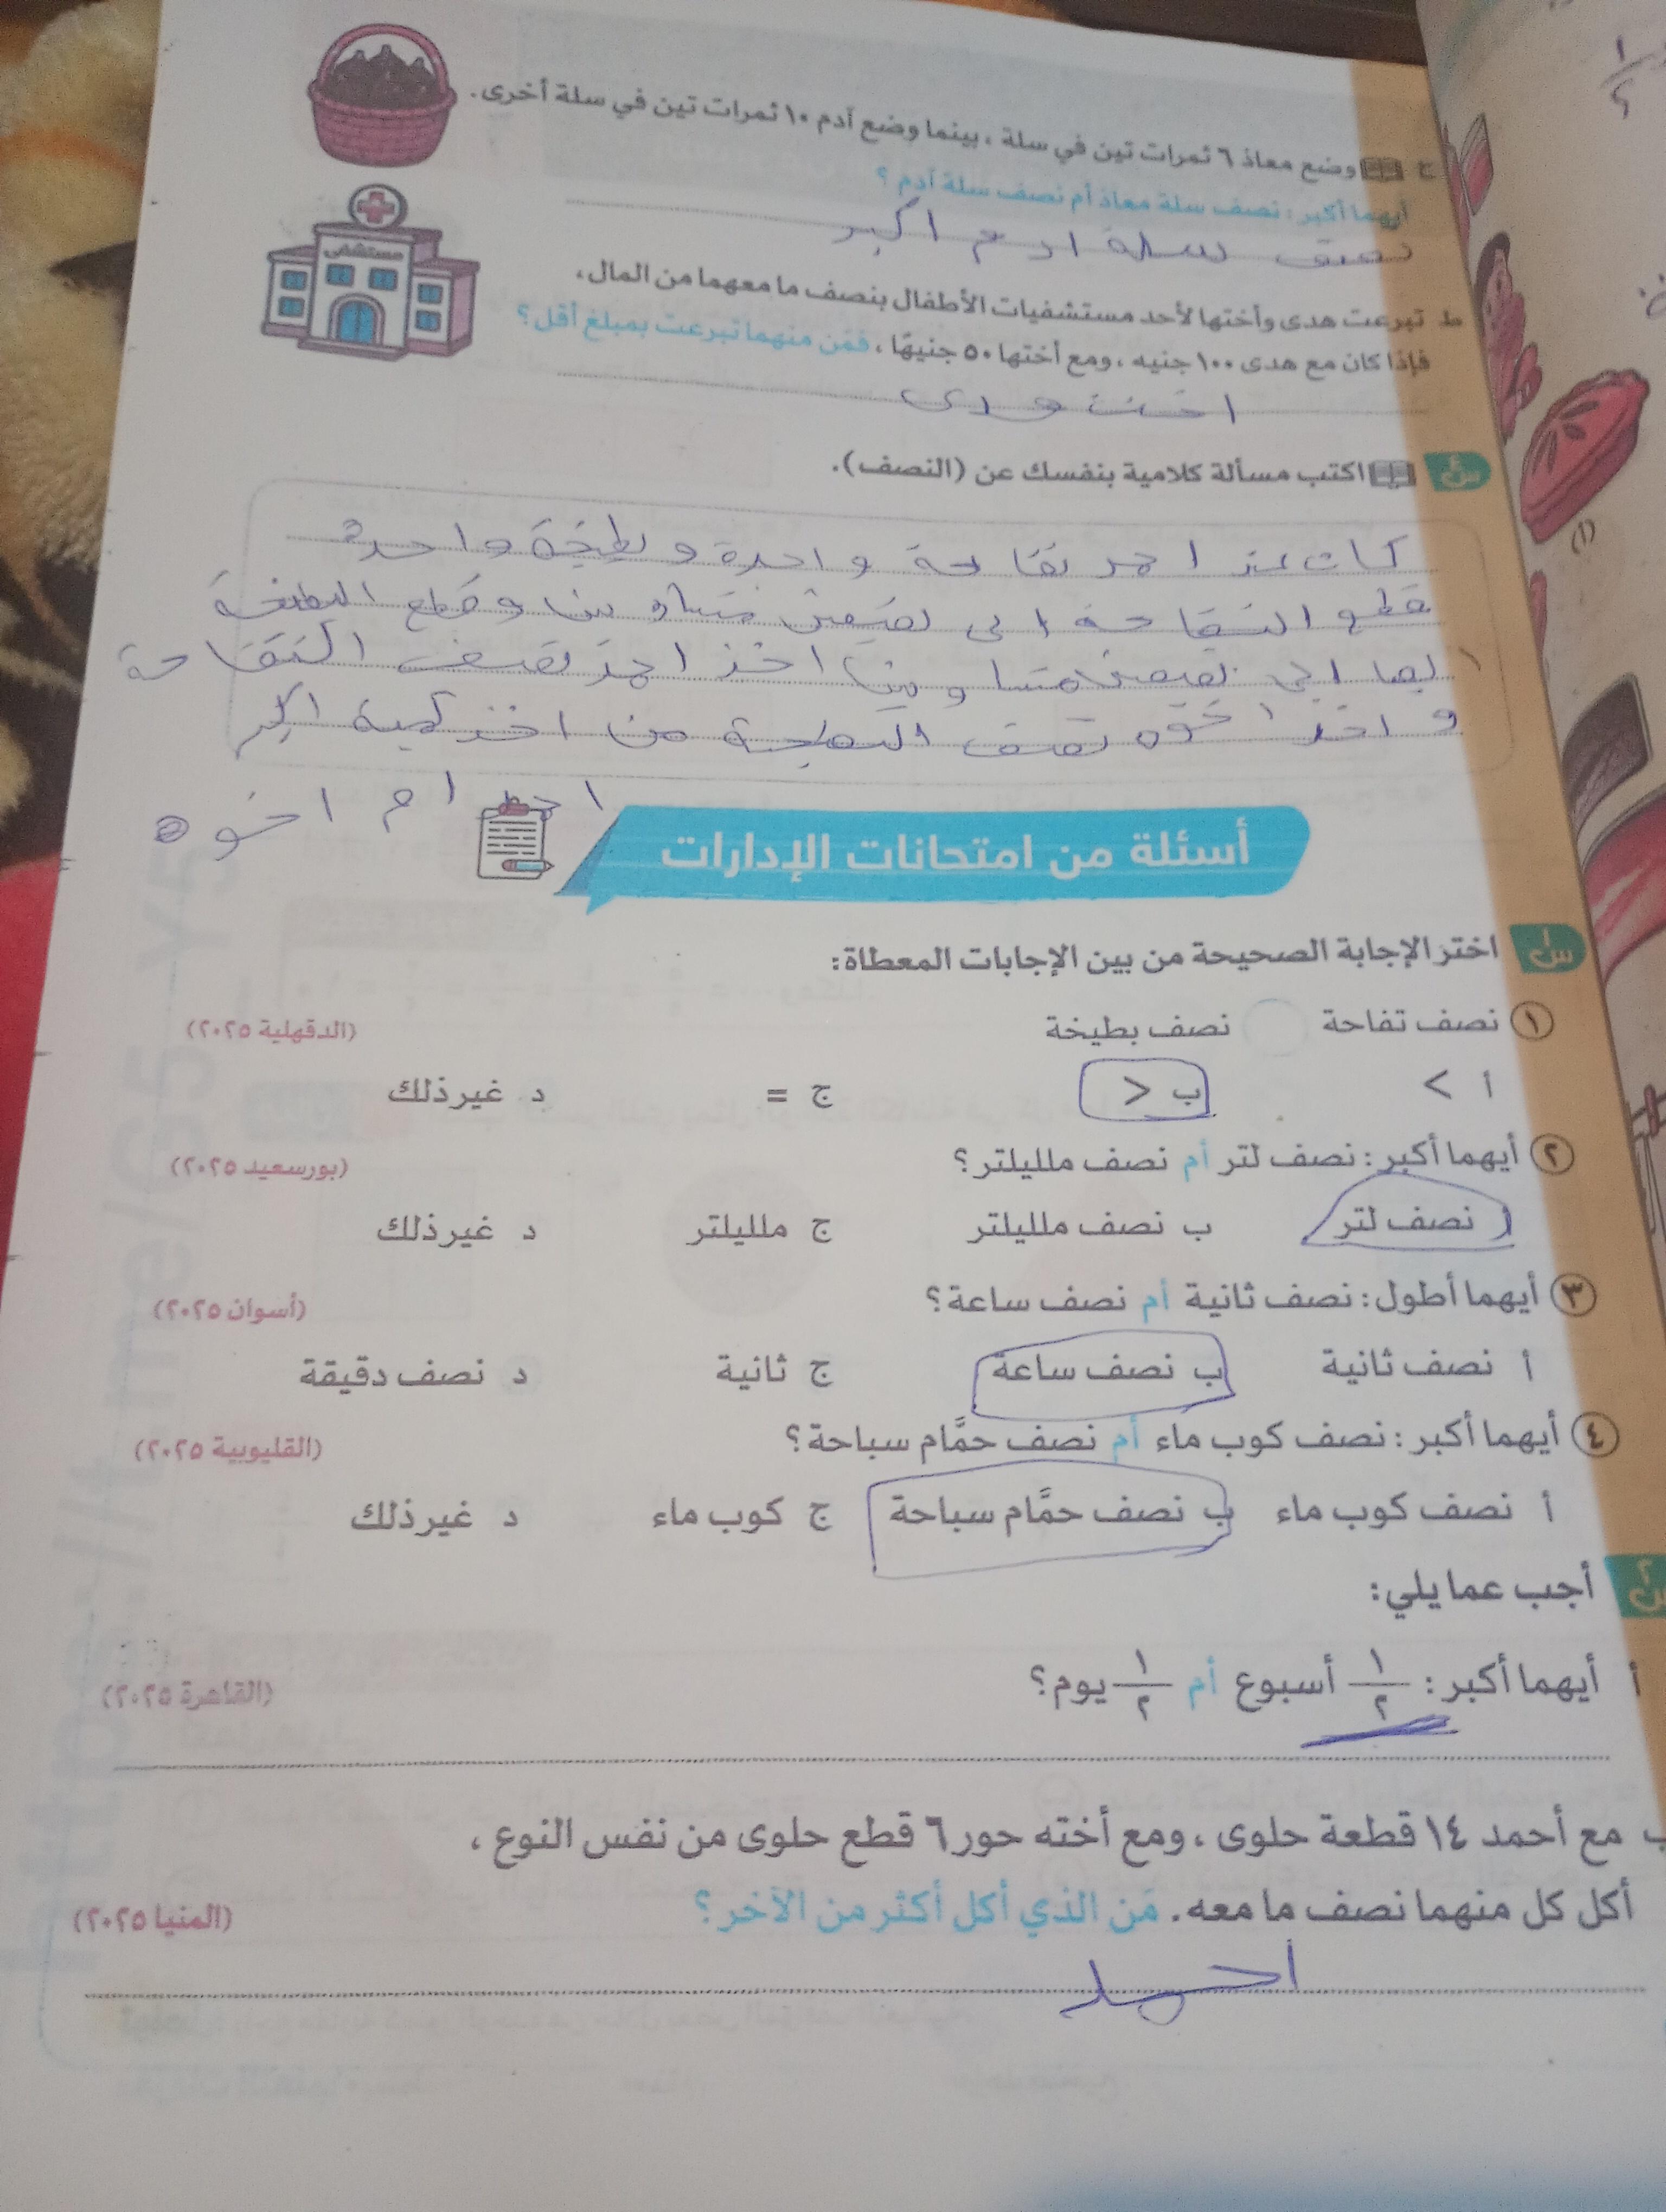 ح وضع معاذ ٦ ثمرات تين في سلة ، بينما وضع آدم ١٠ ثمرات تين في سلة أخرى.
أيهما أكبر : نصف سلة معاذ أم نصف سلة آدم ؟
نصف سلة ادم اكبر
مستشفى
ط تبرعت هدى وأختها لأحد مستشفيات الأطفال بنصف ما معهما من المال ،
فإذا كان مع هدى ١٠٠ جنيه ، ومع أختها ٥٠ جنيهًا ، فمَن منهما تبرعت بمبلغ أقل ؟
اخت هدى
اكتب مسألة كلامية بنفسك عن (النصف).
كان عند احمد تفاحة واحدة و بطيخة واحدة
قطع التفاحة الى نصفين متساوين و قطع البطيخة
ايضا الى نصفين متساوين اخذ احمد نصف التفاحة
و اخذ اخوه نصف البطيخة من اخذ كمية اكبر
احمد ام اخوه
أسئلة من امتحانات الإدارات
س١ اختر الإجابة الصحيحة من بين الإجابات المعطاة:
١ نصف تفاحة نصف بطيخة (الدقهلية ٢٠٢٥)
أ > ب < ج = د غير ذلك
٢ أيهما أكبر : نصف لتر أم نصف ملليلتر ؟ (بورسعيد ٢٠٢٥)
نصف لتر ب نصف ملليلتر ج ملليلتر د غير ذلك
٣ أيهما أطول : نصف ثانية أم نصف ساعة ؟ (أسوان ٢٠٢٥)
أ نصف ثانية ب نصف ساعة ج ثانية د نصف دقيقة
٤ أيهما أكبر : نصف كوب ماء أم نصف حمَّام سباحة ؟ (القليوبية ٢٠٢٥)
أ نصف كوب ماء ب نصف حمَّام سباحة ج كوب ماء د غير ذلك
س٢ أجب عما يلي:
أ أيهما أكبر : ١/٢ أسبوع أم ١/٢ يوم ؟ (القاهرة ٢٠٢٥)
ب مع أحمد ١٤ قطعة حلوى ، ومع أخته حور ٦ قطع حلوى من نفس النوع ،
أكل كل منهما نصف ما معه. مَن الذي أكل أكثر من الآخر ؟ (المنيا ٢٠٢٥)
احمد